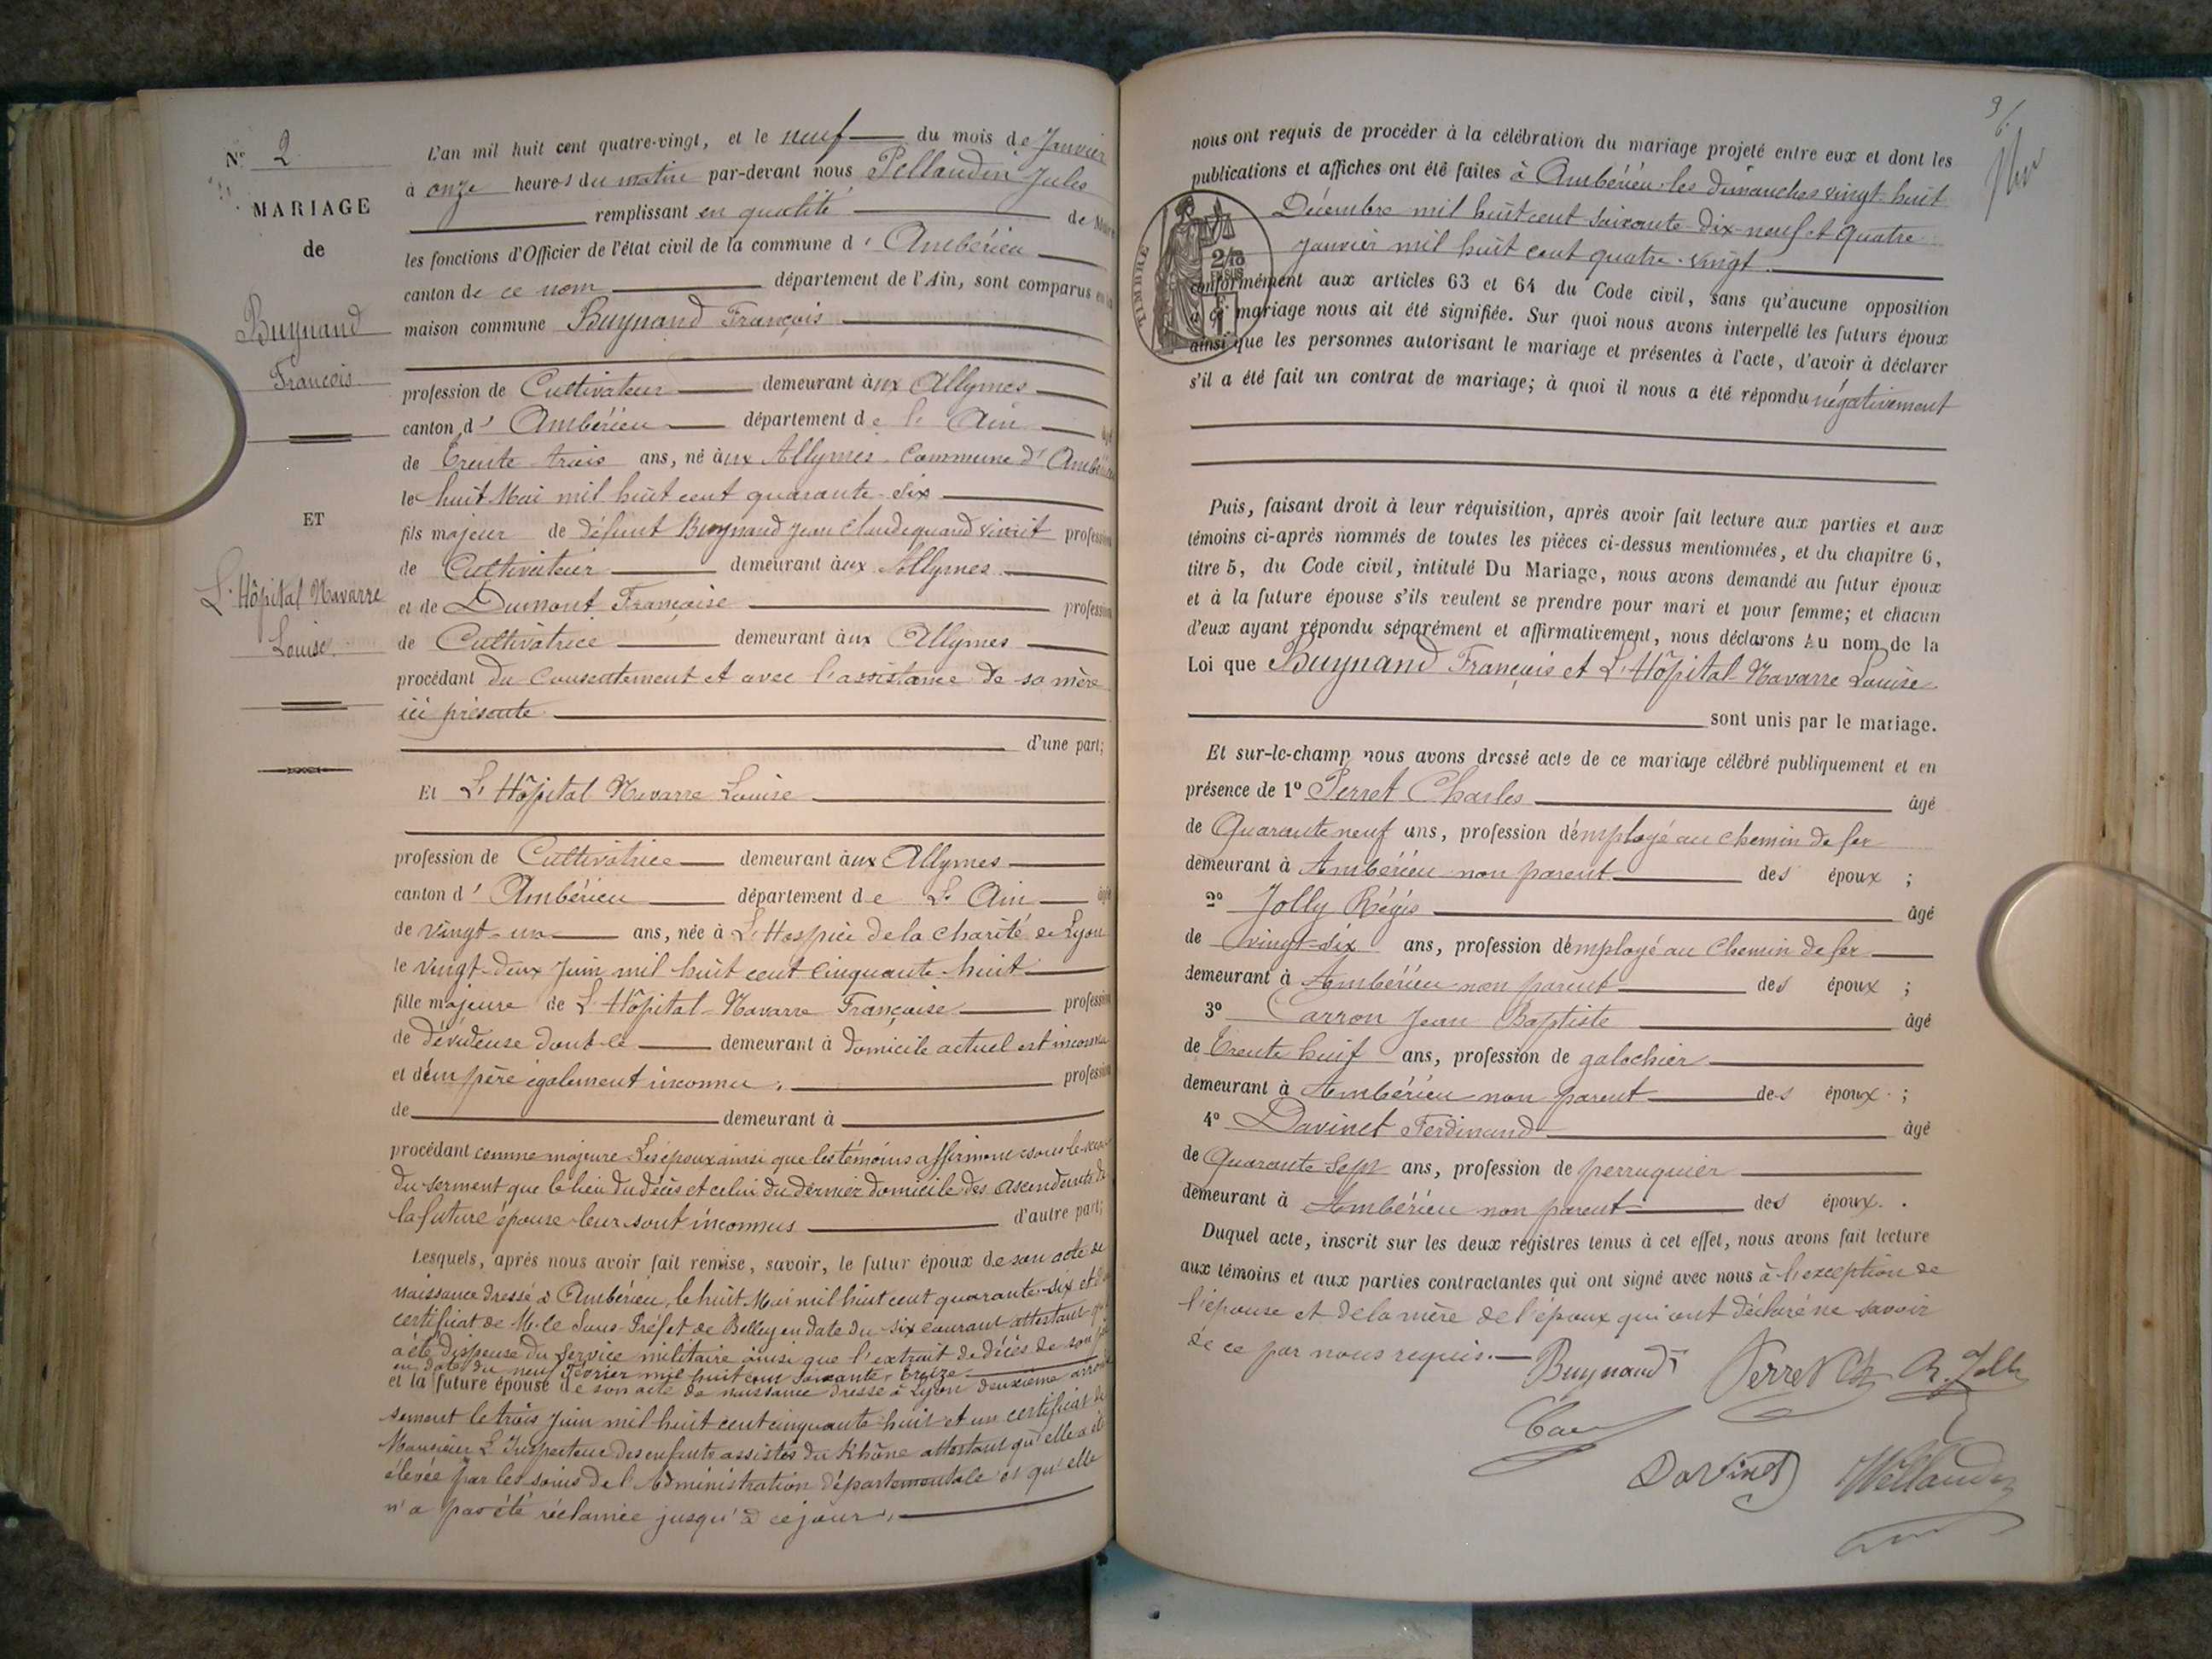 N° 2
MARIAGE
de
Buynand
François
ET
L'Hôpital Navarre
Louise
L'an mil huit cent quatre-vingt, et le neuf du mois de Janvier
à onze heures du matin par-devant nous Pellaudin Jules
remplissant en qualité de Maire
les fonctions d'Officier de l'état civil de la commune d'Ambérieu
canton de ce nom département de l'Ain, sont comparus en la
maison commune Buynand François
profession de Cultivateur demeurant aux Allymes
canton d'Ambérieu département de l'Ain âgé
de Trente trois ans, né aux Allymes Commune d'Ambérieu
le huit Mai mil huit cent quarante-six
fils majeur de défunt Buynand Jean Claude quand vivait profession
de Cultivateur demeurant aux Allymes
et de Dumont Françoise profession
de Cultivatrice demeurant aux Allymes
procédant du Consentement et avec l'assistance de sa mère
ici présente
d'une part;
Et L'Hôpital Navarre Louise
profession de Cultivatrice demeurant aux Allymes
canton d'Ambérieu département de L'Ain âgé
de vingt-un ans, née à L'Hospice de la Charité de Lyon
le vingt-deux Juin mil huit cent cinquante-huit
fille majeure de L'Hôpital-Navarre Françoise profession
de dévideuse dont le demeurant à domicile actuel est inconnu
et d'un père également inconnu. profession
de demeurant à
procédant comme majeure Les époux ainsi que les témoins affirment sous le sceau
du serment que le lieu du décès et celui du dernier domicile des ascendants de
la future épouse leur sont inconnus d'autre part;
Lesquels, après nous avoir fait remise, savoir, le futur époux de son acte de
naissance dressé à Ambérieu, le huit Mai mil huit cent quarante-six et
certificat de M. le Sous-Préfet de Belley en date du six courant attestant qu'il
a été dispensé du service militaire ainsi que l'extrait de décès de son père
en date du neuf Février mil huit cent soixante treize
et la future épouse de son acte de naissance dressé à Lyon deuxième arrondis
sement le trois Juin mil huit cent cinquante huit et un certificat de
Monsieur L'Inspecteur des enfants assistés du Rhône attestant qu'elle a été
élevée par les soins de l'Administration départementale et qu'elle
n'a pas été réclamée jusqu'à ce jour.
nous ont requis de procéder à la célébration du mariage projeté entre eux et dont les
publications et affiches ont été faites à Ambérieu les dimanches vingt-huit
Décembre mil huit cent soixante-dix-neuf et quatre
Janvier mil huit cent quatre-vingt
TIMBRE
2/10
EN SUS
conformément aux articles 63 et 64 du Code civil, sans qu'aucune opposition
à ce mariage nous ait été signifiée. Sur quoi nous avons interpellé les futurs époux
ainsi que les personnes autorisant le mariage et présentes à l'acte, d'avoir à déclarer
s'il a été fait un contrat de mariage; à quoi il nous a été répondu négativement
Puis, faisant droit à leur réquisition, après avoir fait lecture aux parties et aux
témoins ci-après nommés de toutes les pièces ci-dessus mentionnées, et du chapitre 6,
titre 5, du Code civil, intitulé Du Mariage, nous avons demandé au futur époux
et à la future épouse s'ils veulent se prendre pour mari et pour femme; et chacun
d'eux ayant répondu séparément et affirmativement, nous déclarons au nom de la
Loi que Buynand François et L'Hôpital-Navarre Louise
sont unis par le mariage.
Et sur-le-champ nous avons dressé acte de ce mariage célébré publiquement et en
présence de 1° Perret Charles âgé
de Quarante neuf ans, profession d'employé au chemin de fer
demeurant à Ambérieu non parent des époux ;
2° Jolly Régis âgé
de vingt-six ans, profession d'employé au Chemin de fer
demeurant à Ambérieu non parent des époux ;
3° Carron Jean Baptiste âgé
de Trente huit ans, profession de galochier
demeurant à Ambérieu non parent des époux ;
4° Davinet Ferdinand âgé
de Quarante Sept ans, profession de perruquier
demeurant à Ambérieu non parent des époux.
Duquel acte, inscrit sur les deux registres tenus à cet effet, nous avons fait lecture
aux témoins et aux parties contractantes qui ont signé avec nous à l'exception de
l'épouse et de la mère de l'époux qui ont déclaré ne savoir
de ce par nous requis.
Buynand Perret Ch R. Jolly
Davinet Pellaudin